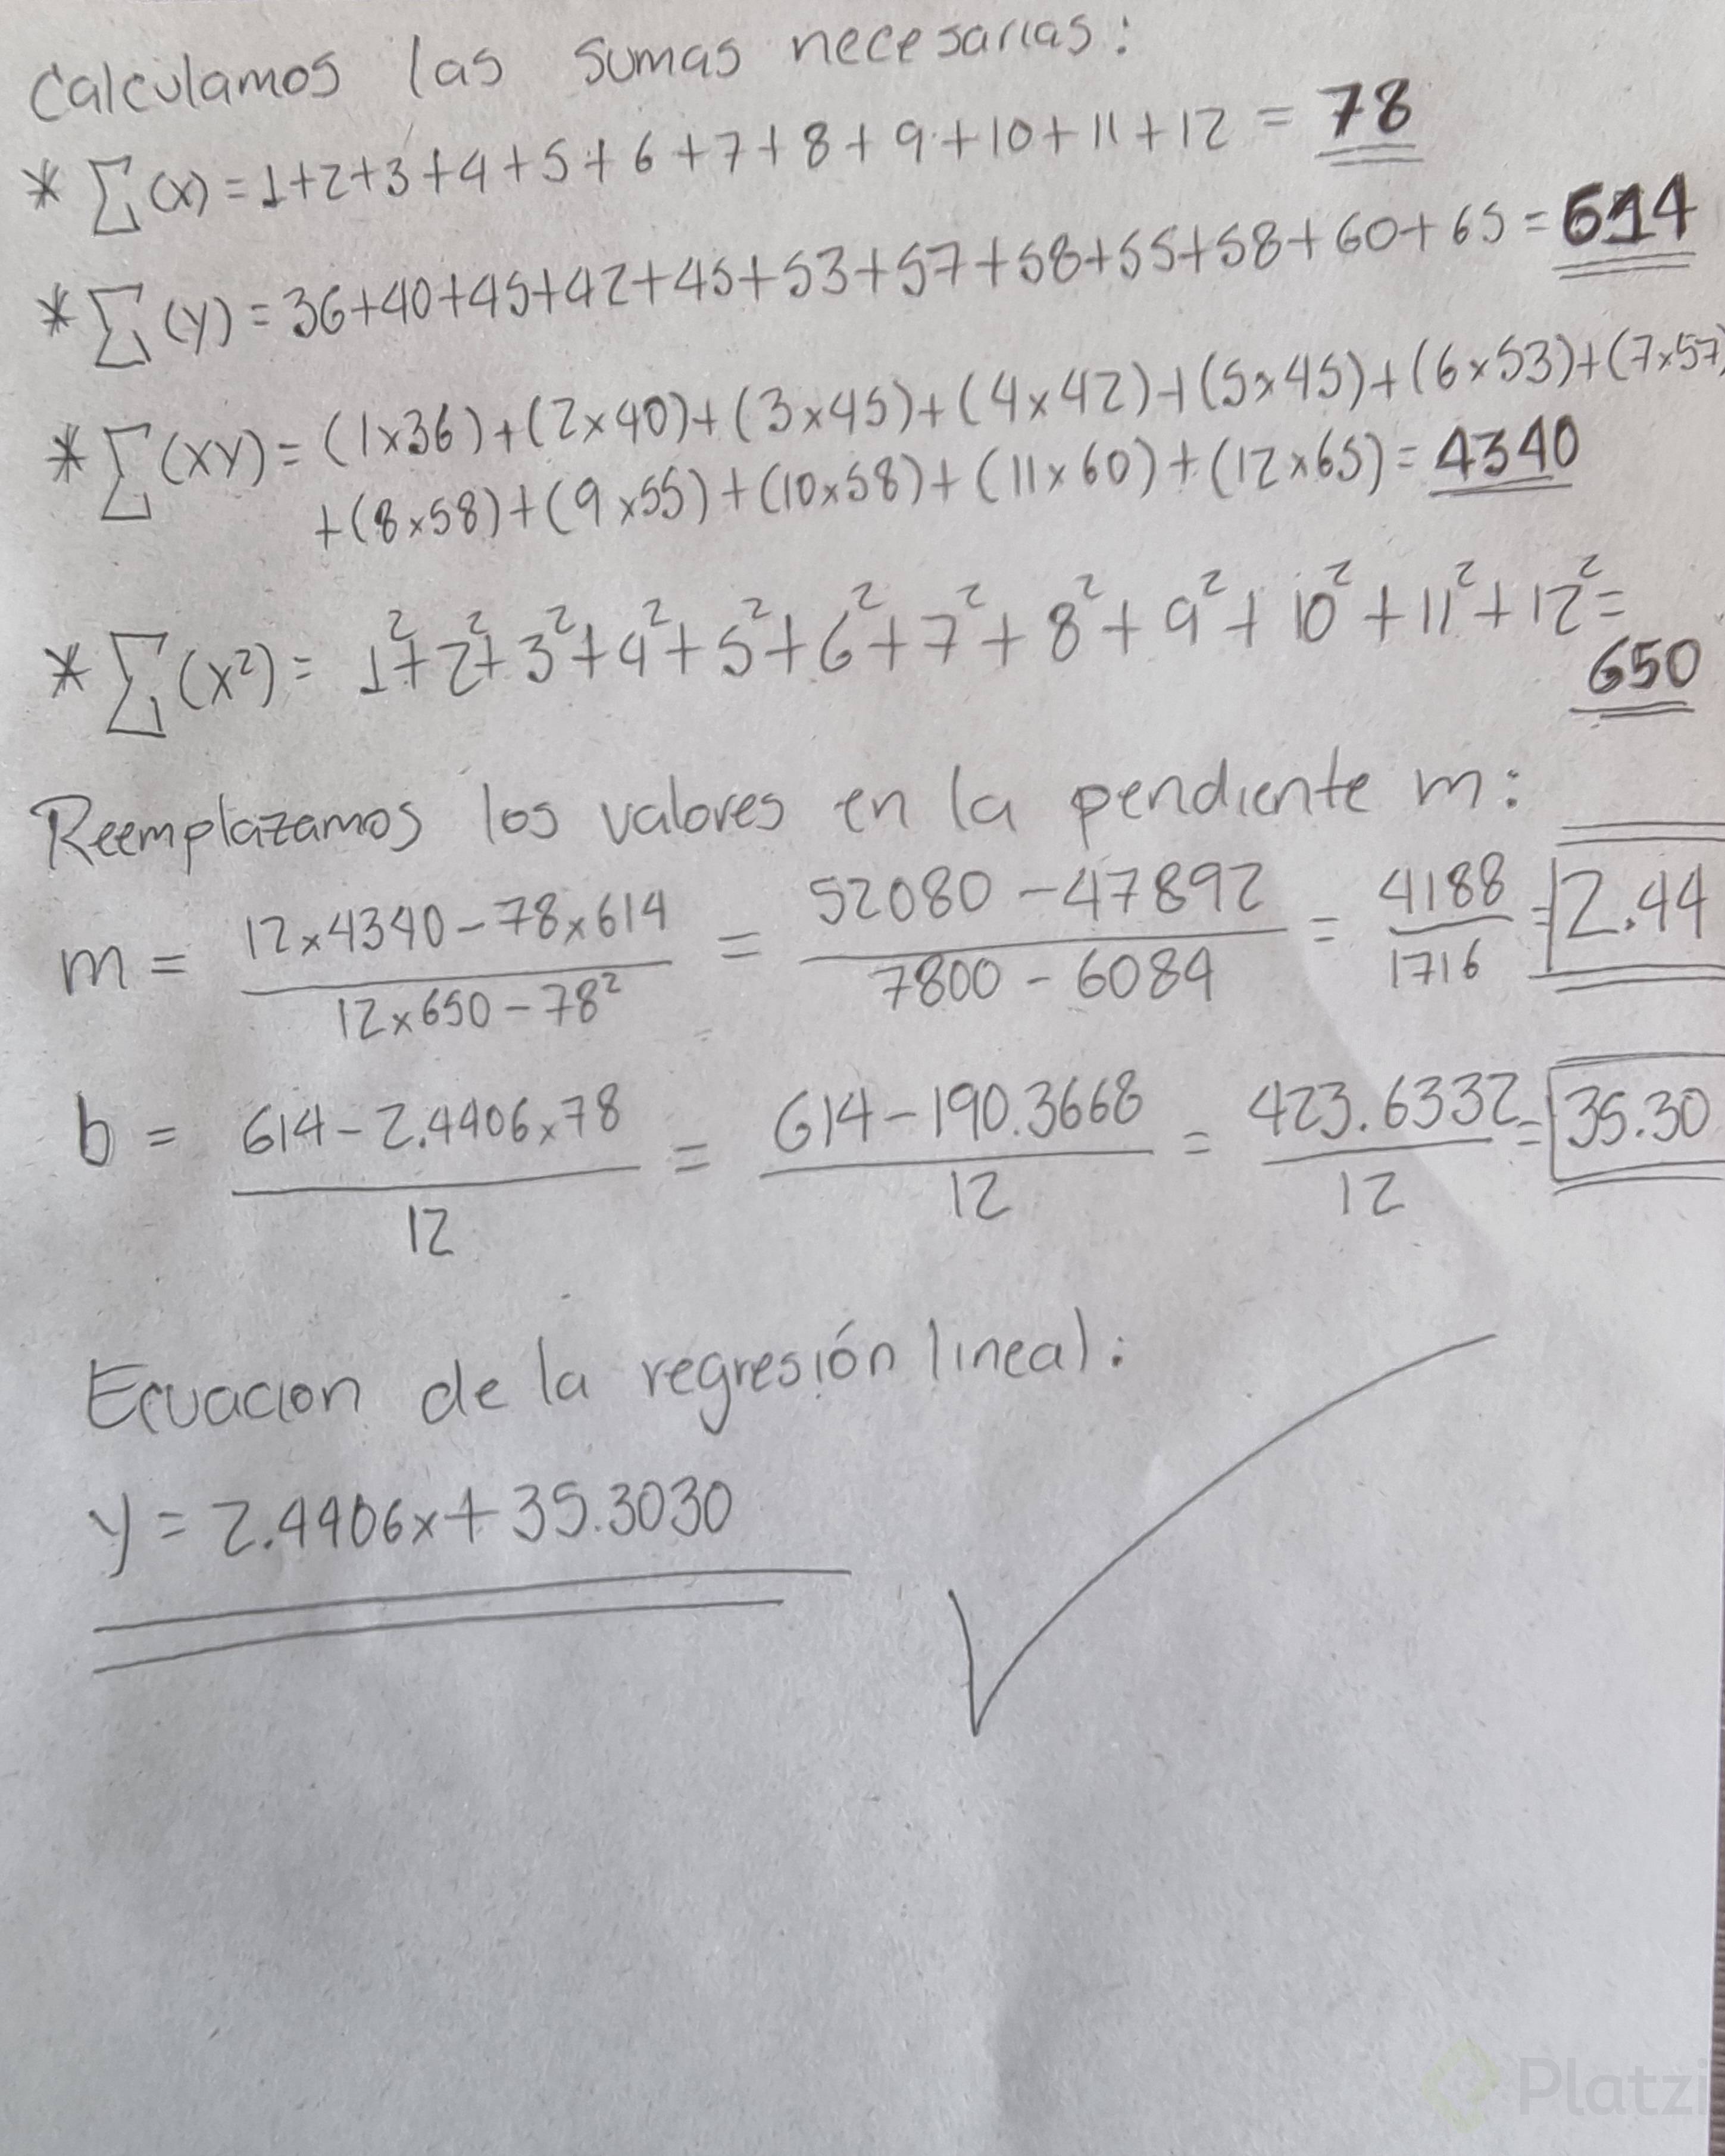 Calculamos las sumas necesarias:
* Σ(x) = 1+2+3+4+5+6+7+8+9+10+11+12 = 78
* Σ(y) = 36+40+45+42+45+53+57+58+55+58+60+65 = 614
* Σ(xy) = (1x36)+(2x40)+(3x45)+(4x42)+(5x45)+(6x53)+(7x57)
+(8x58)+(9x55)+(10x58)+(11x60)+(12x65) = 4340
* Σ(x²) = 1²+2²+3²+4²+5²+6²+7²+8²+9²+10²+11²+12² =
650
Reemplazamos los valores en la pendiente m:
m = (12x4340-78x614)/(12x650-78²) = (52080-47892)/(7800-6084) = 4188/1716 = 2.44
b = (614-2.4406x78)/12 = (614-190.3668)/12 = 423.6332/12 = 35.30
Ecuacion de la regresión lineal:
y = 2.4406x+35.3030
Platzi